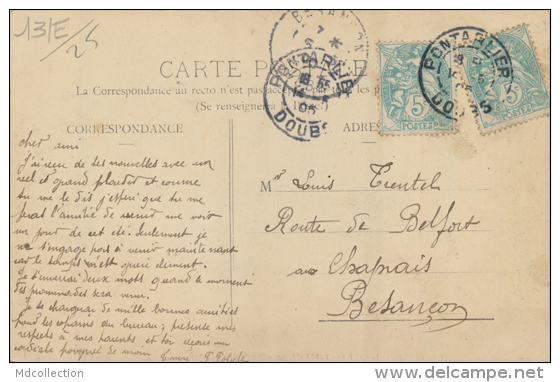 13/E
25
BESANCON
CARTE POSTALE
La Correspondance au recto n'est pas acceptée
(Se renseigner
PONTARLIER
DOUBS
5
POSTES
PONTARLIER
DOUBS
5
POSTES
CORRESPONDANCE
ADRES
Cher ami
J'ai reçu de tes nouvelles avec un
réel et grand plaisir et comme
tu me le dis j'espère que tu me
feras l'amitié de venir me voir
un jour de cet été. Seulement je
ne t'engage pas à venir maintenant
car le temps n'est guère clément.
Je t'enverrai deux mots quand le moment
des promenades sera venu.
Je te charge de mille bonnes amitiés
pour les copains du bureau; présente mes
respects à tes parents et toi reçois un
cordiale poignée de main
Mr Louis Trentel
Route de Belfort
aux Chaprais
Besançon
Mdcollection
www.delcampe.net